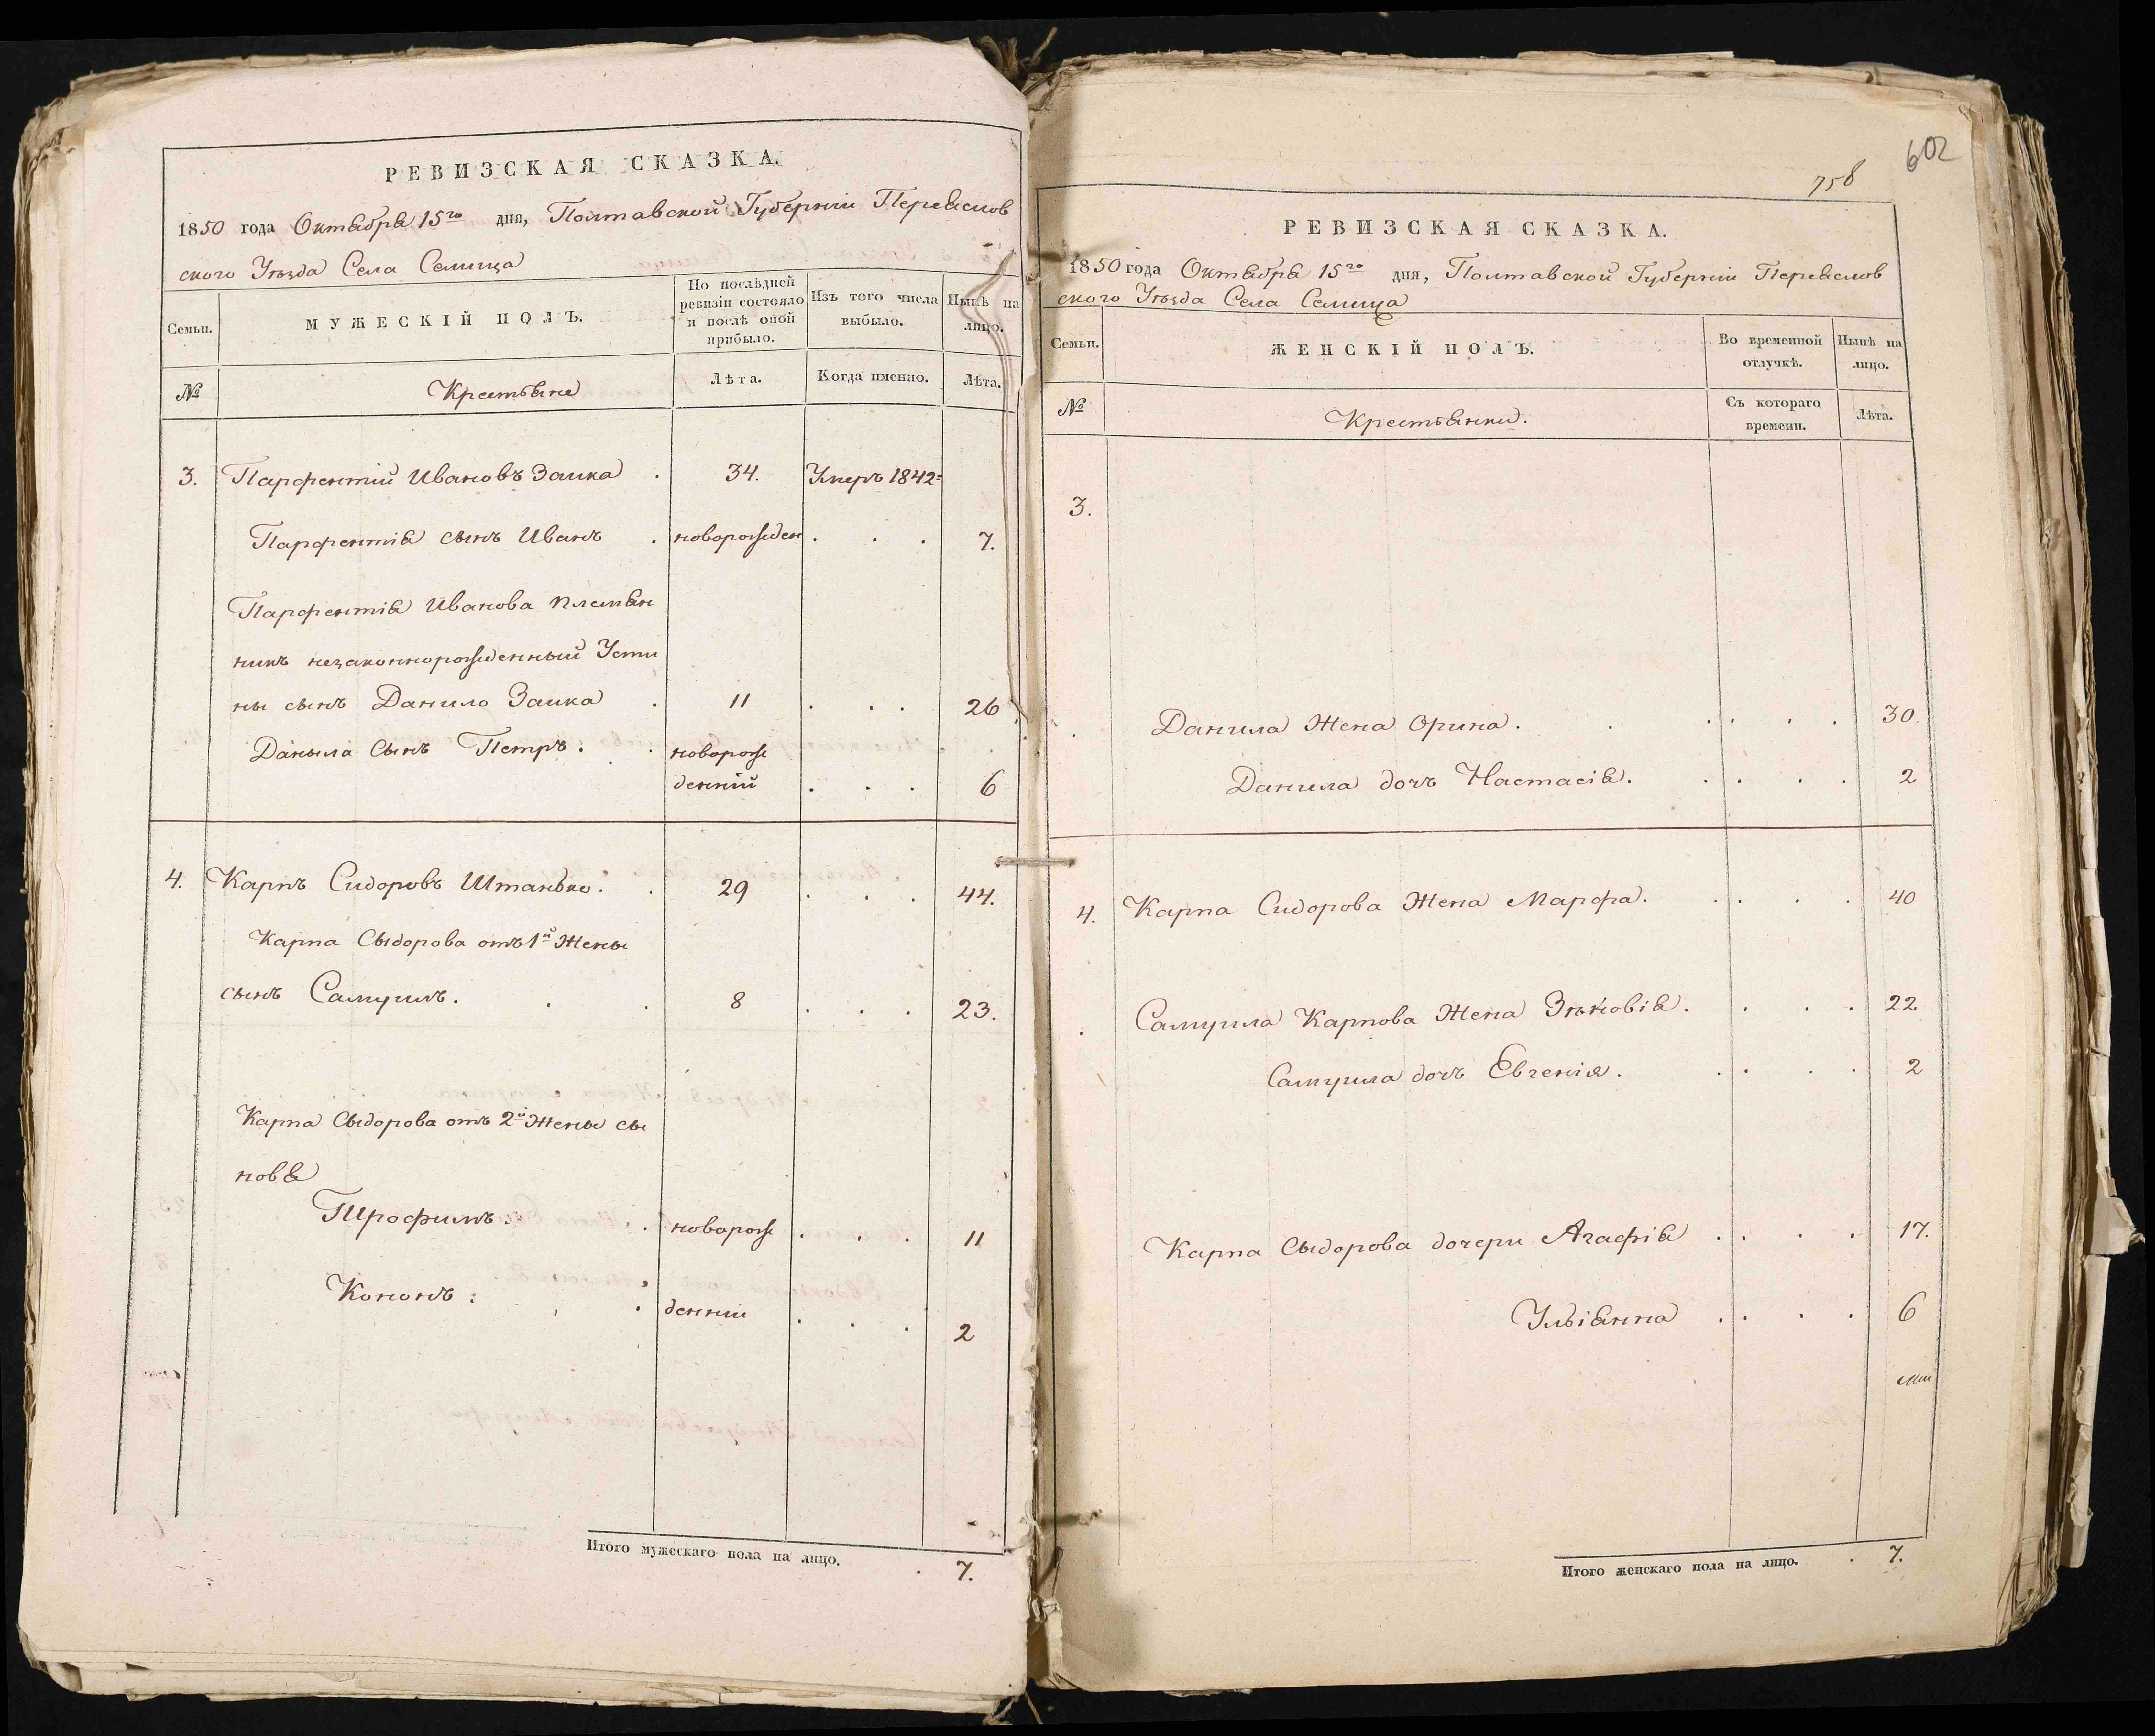 РЕВИЗСКАЯ СКАЗКА.
1850 года Октября 15го дня, Полтавской Губерніи Переяслов
ского Уѣзда Села Семища
Семьи.
МУЖЕСКІЙ ПОЛЪ.
По послѣдней ревизіи состояло и послѣ оной прибыло.
Изъ того числа выбыло.
Нынѣ на лицо.
№
Крестьяне
Лѣта.
Когда именно.
Лѣта.
3. Парфентій Ивановъ Заика . 34. Умеръ 1842г
Парфентія сынъ Иванъ . новорожден . . . 7.
Парфентія Иванова племян
никъ незаконнорожденный Усти
ны сынъ Данило Заика . 11 . . . 26
Даныла Сынъ Петръ . . новорож
денній . . . 6
4. Карпъ Сидоровъ Штанько . . 29 . . . 44.
Карпа Сыдорова отъ 1й Жены
сынъ Самуилъ . . . 8 . . . 23.
Карпа Сыдорова отъ 2й Жены сы
новя
Трофимъ . . новорож . . . 11
Кононъ . . . денніи . . . 2
Итого мужескаго пола на лицо. . 7.
602
758
РЕВИЗСКАЯ СКАЗКА.
1850 года Октября 15го дня, Полтавской Губерніи Переяслов
ского Уѣзда Села Семища
Семьи.
ЖЕНСКІЙ ПОЛЪ.
Во временной отлучкѣ.
Нынѣ на лицо.
№
Крестьянки.
Съ котораго времени.
Лѣта.
3.
Данила Жена Орина . . . . . . 30.
Данила дочъ Настасія . . . . . 2
4. Карпа Сидорова Жена Марфа . . . . . 40
Самуила Карпова Жена Зѣновія . . . . 22
Самуила дочъ Евгенія . . . . . 2
Карпа Сыдорова дочери Агафія . . . . 17.
Ульіянна . . . . 6
Итого женскаго пола на лицо. . 7.